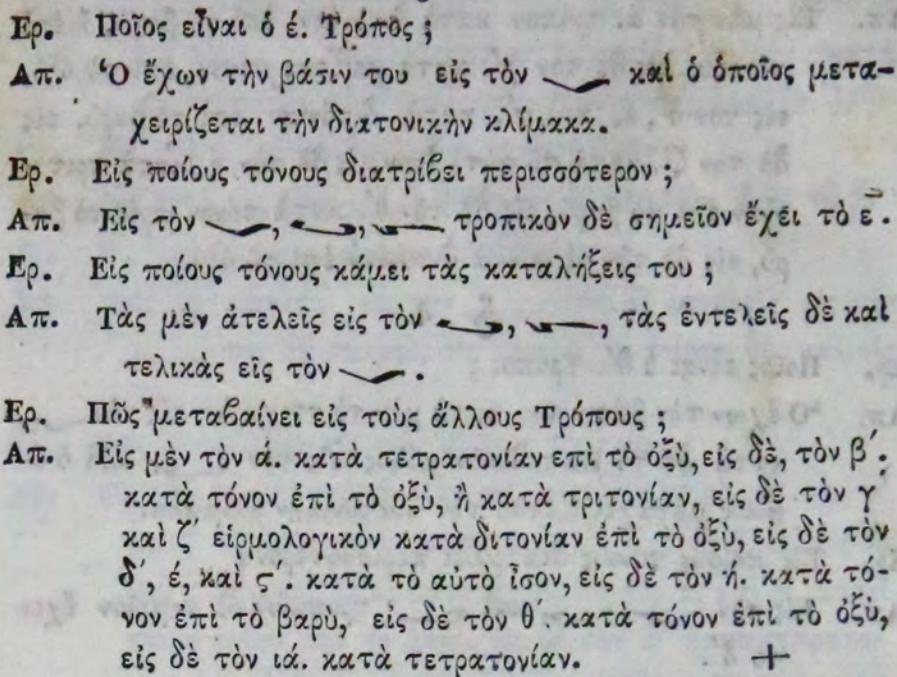 Ερ. Ποῖος εἶναι ὁ έ. Τρόπος ;
Απ. Ὁ ἔχων τὴν βάσιν του εἰς τὸν καὶ ὁ ὁποῖος μετα-
χειρίζεται τὴν διατονικὴν κλίμακα.
Ερ. Εἰς ποίους τόνους διατρίβει περισσότερον ;
Απ. Εἰς τὸν , , τροπικὸν δὲ σημεῖον ἔχει τὸ ε̄ .
Ερ. Εἰς ποίους τόνους κάμει τὰς καταλήξεις του ;
Απ. Τὰς μὲν ἀτελεῖς εἰς τὸν , , τὰς ἐντελεῖς δὲ καὶ
τελικὰς εἰς τὸν .
Ερ. Πῶς μεταβαίνει εἰς τοὺς ἄλλους Τρόπους ;
Απ. Εἰς μὲν τὸν ά. κατὰ τετρατονίαν επὶ τὸ ὀξὺ, εἰς δὲ, τὸν β´.
κατὰ τόνον ἐπὶ τὸ ὀξὺ, ἢ κατὰ τριτονίαν, εἰς δὲ τὸν γ´
καὶ ζ´ εἱρμολογικὸν κατὰ διτονίαν ἐπὶ τὸ ὀξὺ, εἰς δὲ τὸν
δ´, έ, καὶ ς´. κατὰ τὸ αὐτὸ ἶσον, εἰς δὲ τὸν ή. κατὰ τό-
νον ἐπὶ τὸ βαρὺ, εἰς δὲ τὸν θ´ κατὰ τόνον ἐπὶ τὸ ὀξὺ,
εἰς δὲ τὸν ιά. κατὰ τετρατονίαν. +